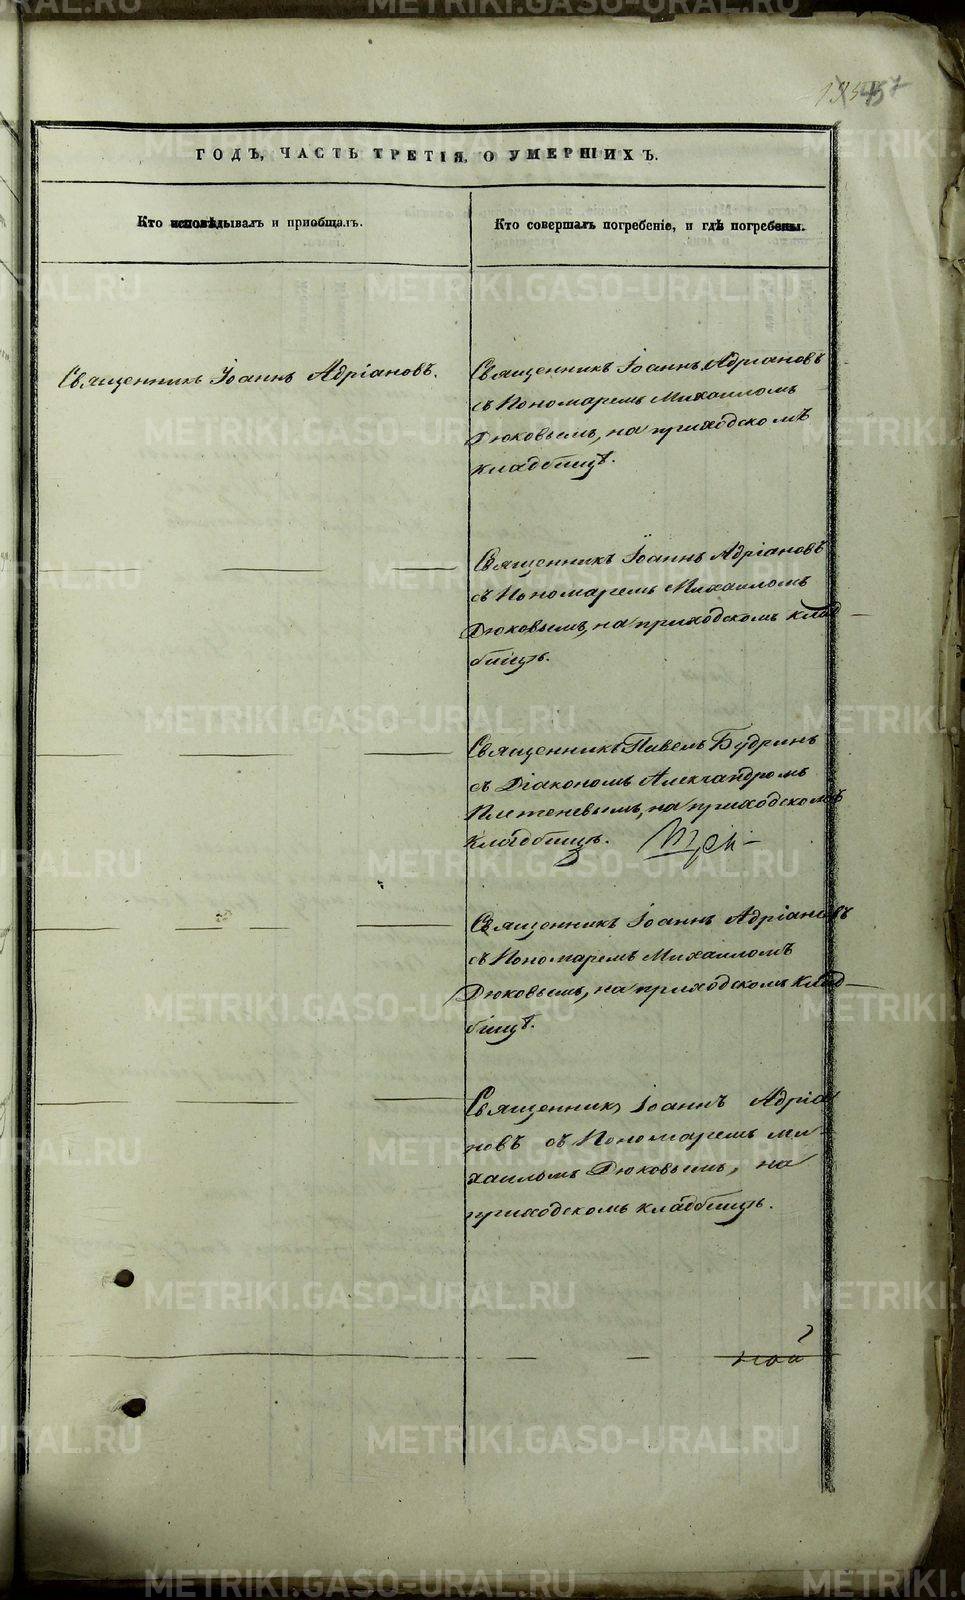 ГОДЪ, ЧАСТЬ ТРЕТІЯ, О УМЕРШИХЪ.
Кто исповѣдывалъ и приобщалъ.
Кто совершалъ погребеніе, и гдѣ погребены.
Священникъ Іоаннъ Адріановъ.
Священникъ Іоаннъ Адріановъ
съ Пономаремъ Михаиломъ
Дюковымъ, на приходскомъ
кладбищѣ.
Священникъ Іоаннъ Адріановъ
съ Пономаремъ Михаиломъ
Дюковымъ, на приходскомъ клад
бищѣ.
Священникъ Павелъ Будринъ
съ Діакономъ Александромъ
Плетеневымъ, на приходскомъ
кладбищѣ.
Священникъ Іоаннъ Адріановъ
съ Пономаремъ Михаиломъ
Дюковымъ, на приходскомъ клад-
бищѣ.
Священникъ Іоаннъ Адріа
новъ съ Пономаремъ Ми-
хаиломъ Дюковымъ, на
приходскомъ кладбищѣ.
METRIKI.GASO-URAL.RU